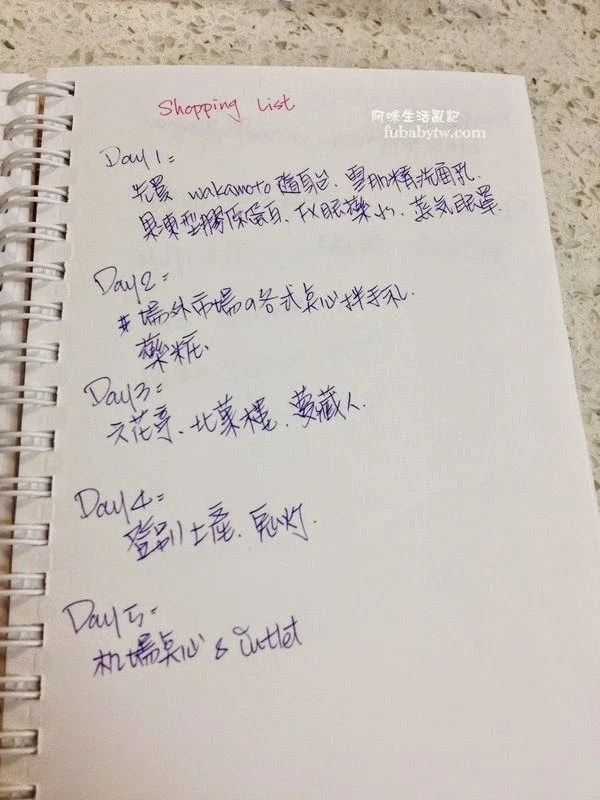 Shopping List
阿咪生活亂記
fubabytw.com
Day1=
先買 wakamoto 隨身台、雪肌精洗面乳、
果凍型膠原蛋白、FX眼藥水、蒸気眼罩.
Day2=
#場外市場の各式点心拌手礼.
藥粧.
Day3=
六花亭、北菓樓、夢藏人.
Day4=
登別土產、鬼灯.
Day5=
机場点心 & Outlet